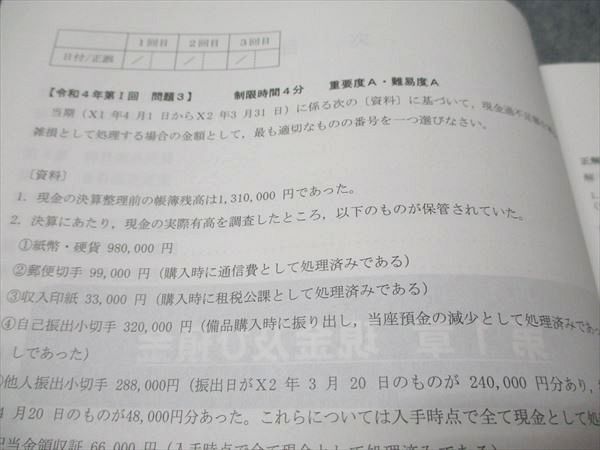 1回目 2回目 3回目
日付/正誤 / / /
【令和4年第Ⅰ回 問題3】 制限時間4分 重要度A・難易度A
当期(X1 年4 月1 日からX2 年3 月31 日)に係る次の〔資料〕に基づいて,現金過不足
雑損として処理する場合の金額として,最も適切なものの番号を一つ選びなさい。
〔資料〕
1. 現金の決算整理前の帳簿残高は1,310,000 円であった。
2. 決算にあたり,現金の実際有高を調査したところ,以下のものが保管されていた。
①紙幣・硬貨 980,000 円
②郵便切手 99,000 円(購入時に通信費として処理済みである)
③収入印紙 33,000 円(購入時に租税公課として処理済みである)
④自己振出小切手 320,000 円(備品購入時に振り出し,当座預金の減少として処理済みであっ
しであった)
他人振出小切手 288,000円(振出日がX2 年 3 月 20 日のものが 240,000 円分あり,
4 月20 日のものが48,000円分あった。これらについては入手時点で全て現金として処
配当金領収証 66,000 円(入手時点で全て現金として処理済みである)
正解
解
1.
第1章 現金及び預金